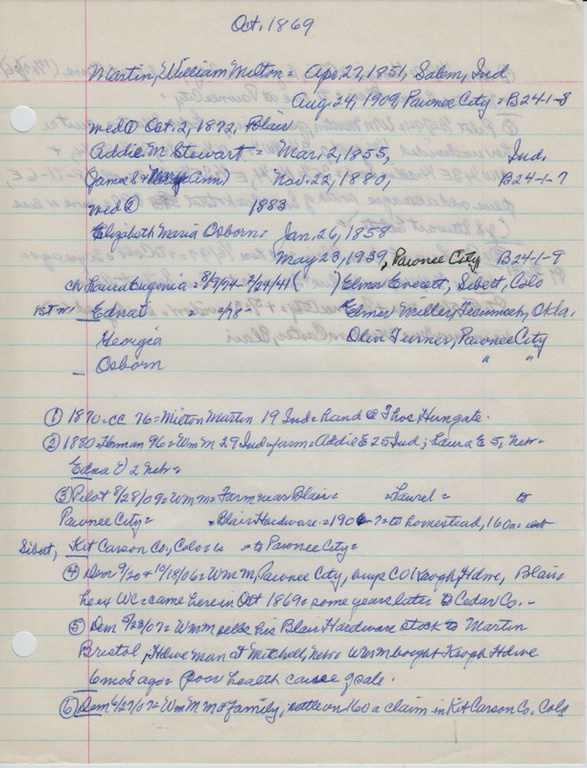 Oct. 1869
Martin, William Milton = Apr. 27, 1851, Salem, Ind
Aug. 24, 1909, Pawnee City = B24-1-8
wed ① Oct. 2, 1872, Blair
Addie M Stewart = Mar. 2, 1855, Ind.
(James S + Mary Ann) Nov. 22, 1880, B24-1-7
wed ② 1883
Elizabeth Maria Osborn = Jan. 26, 1859
May 23, 1939, Pawnee City B24-1-9
ch: Laura Eugenia = 8/9/74 - 7/24/41 ( ) Elmer Everett, Sibert, Colo
Edna = Elmer Miller, Tecumseh, Okla.
Georgia Olin Turner, Pawnee City
Osborn " "
① 1870=CC 76= Milton Martin 19 Ind= hand @ Thos Hungate.
② 1880= Herman 96= Wm M 29 Ind= farm= Addie E 25 Ind; Laura E 5, Nebr=
Edna O 2 Nebr=
③ Pilot 8/28/09= Wm M= Farm near Blair= =Laurel= to
Pawnee City= =Blair Hardware= 1906-7= to homestead, 160a=
Sibert, Kit Carson Co, Colo= = to Pawnee City=
④ Dem 9/20 + 10/18/06= Wm M, Pawnee City, buys CO Keogh Hdwe, Blair=
he ex WC= came here in Oct 1869= some years later to Cedar Co. -
⑤ Dem 5/23/07= Wm M sells his Blair Hardware stock to Martin
Bristol, Hdwe man at Mitchell, Nebr= Wm M bought Keogh Hdwe
6 mos ago= Poor health cause of sale.
⑥ Dem 6/27/07= Wm M M + family, settle on 160 a claim in Kit Carson Co. Colo